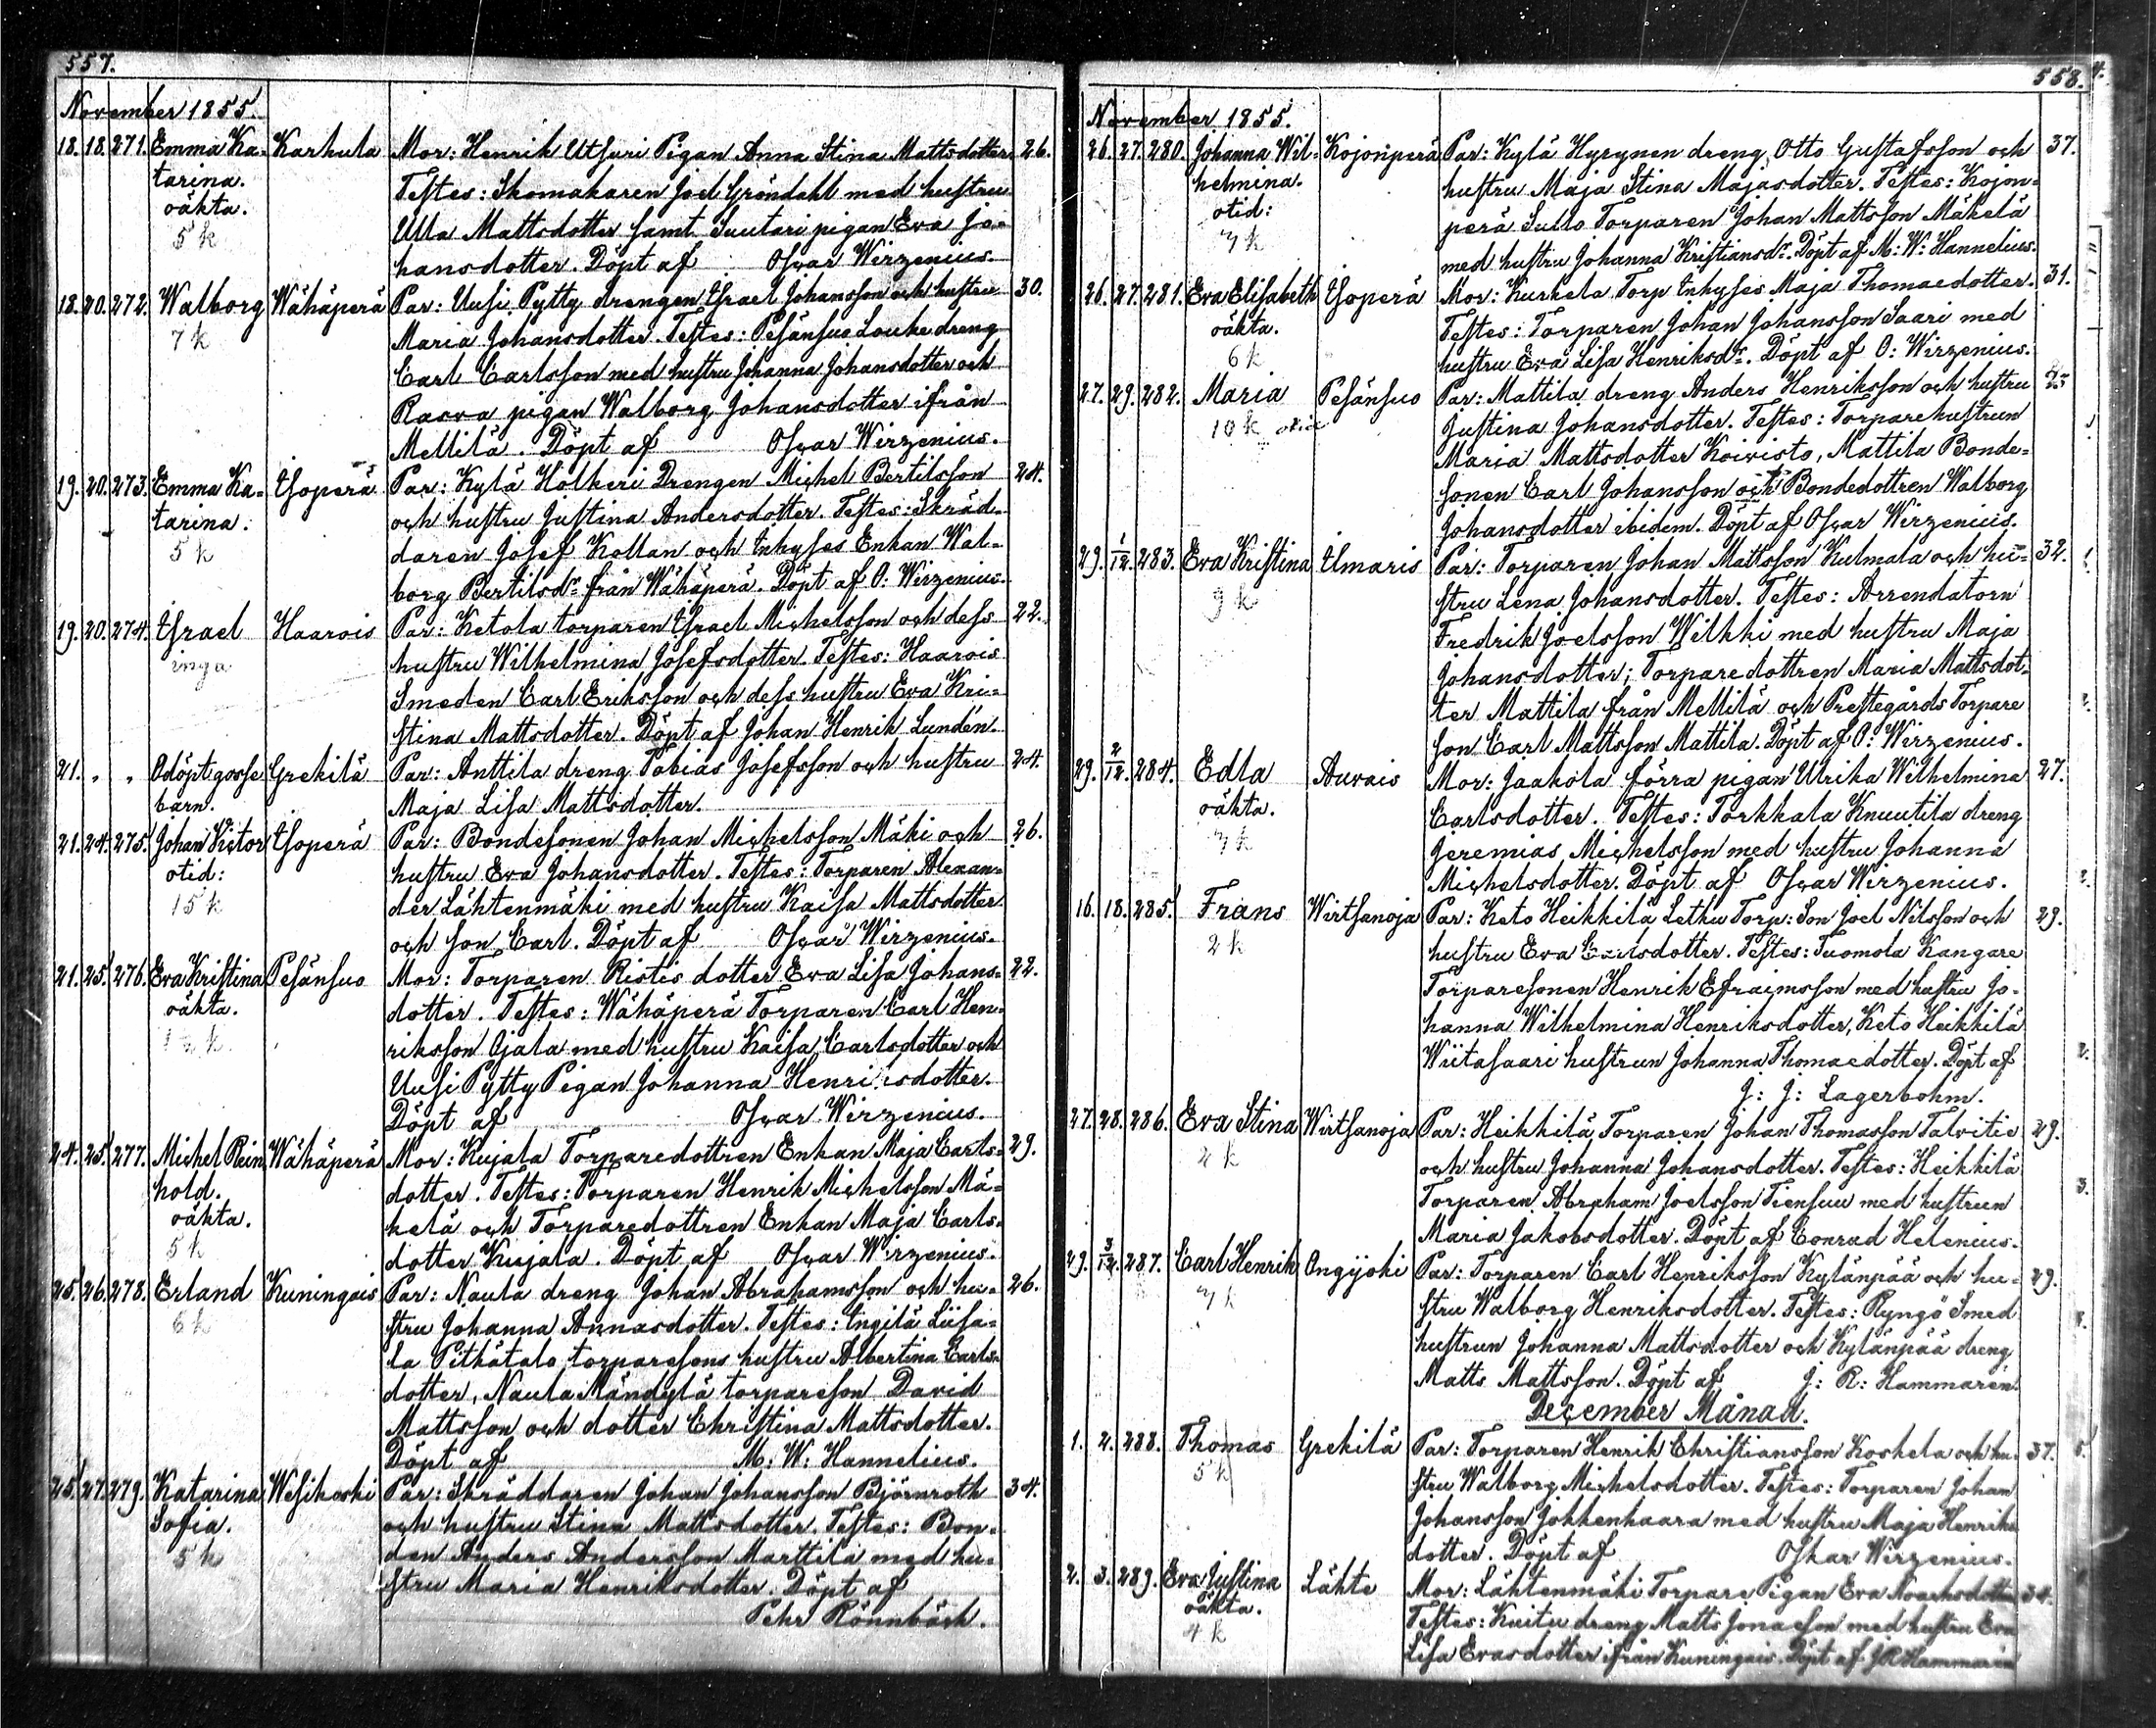 557.
November 1855.
18. 18. 271. Emma Ka- Karhula Mor: Henrik Utsuri Pigan Anna Stina Mattsdotter 26.
tarina. Testes: Skomakaren Joel Gröndahl med hustru
oäkta. Ulla Mattsdotter samt Suutari pigan Eva Jo-
5 k hansdotter. Döpt af Oscar Wirzenius.
18. 20. 272. Walborg Wähäperä Par: Uusi Pytty drengen Israel Johansson och hustru 30.
7 k Maria Johansdotter. Testes: Pesänsuo Louke dreng
Carl Carlsson med hustru Johanna Johansdotter och
Rasva pigan Walborg Johansdotter ifrån
Mellilä. Döpt af Oscar Wirzenius.
19. 20. 273. Emma Ka- Isoperä Par: Kylä Hölkeri Drengen Michel Bertilsson 24.
tarina. och hustru Justina Andersdotter. Testes: Skräd-
5 k daren Josef Kollan och Inhyses Enkan Wal-
borg Bertilsdr från Wähäperä. Döpt af O: Wirzenius.
19. 20. 274. Israel Haarois Par: Ketola torparen Israel Michelsson och dess 22.
inga hustru Wilhelmina Josefsdotter. Testes: Haarois
Smeden Carl Eriksson och dess hustru Eva Kri-
stina Mattsdotter. Döpt af Johan Henrik Lundén.
21. " " Odöpt gosse Grekilä Par: Anttila dreng Tobias Josefsson och hustru 24.
barn. Maja Lisa Mattsdotter.
21. 24. 275. Johan Victor Isoperä Par: Bondesonen Johan Michelsson Mäki och 26.
otid: hustru Eva Johansdotter. Testes: Torparen Alexan-
15 k der Lähtenmäki med hustru Kaisa Mattsdotter
och son Carl. Döpt af Oscar Wirzenius.
21. 25. 276. Eva Kristina Pesänsuo Mor: Torparen Ristis dotter Eva Lisa Johans- 22.
oäkta. dotter. Testes: Wähäperä Torparen Carl Hen-
riksson Ojala med hustru Kaisa Carlsdotter och
Uusi Pytty Pigan Johanna Henriksdotter.
Döpt af Oscar Wirzenius.
24. 25. 277. Michel Rein Wähäperä Mor: Kujala Torparedottren Enkan Maja Carls- 29.
hold. dotter. Testes: Torparen Henrik Michelsson Mä-
oäkta. kelä och Torparedottren Enkan Maja Carls-
5 k dotter Kujala. Döpt af Oscar Wirzenius.
25. 26. 278. Erland Kuningais Par: Naula dreng Johan Abrahamsson och hu- 26.
6 k stru Johanna Annasdotter. Testes: Ingilä Liisa-
la Pitkätalo torparesons hustru Albertina Carls-
dotter, Naula Mändylä torpareson David
Mattsson och dotter Christina Mattsdotter.
Döpt af M: W: Hannelius.
25. 27. 279. Katarina Wesikoski Par: Skräddaren Johan Johansson Björnroth 34.
Sofia. och hustru Stina Mattsdotter. Testes: Bon-
5 k den Anders Andersson Marttila med hu-
stru Maria Henriksdotter. Döpt af
Pehr Rönnbäck.
558.
November 1855.
26. 27. 280. Johanna Wil- Kojonperä Par: Kylä Hyrynen dreng Otto Gustafsson och 37.
helmina. hustru Maja Stina Majasdotter. Testes: Kojon-
otid: perä Sullo Torparen Johan Mattsson Mäkelä
7 k med hustru Johanna Kristiansdr. Döpt af M: W: Hannelius.
26. 27. 281. Eva Elisabeth Isoperä Mor: Kurkela Torp Inhyses Maja Thomaedotter. 31.
oäkta. Testes: Torparen Johan Johansson Saari med
6 k hustru Eva Lisa Henriksdr. Döpt af O: Wirzenius.
27. 29. 282. Maria Pesänsuo Par: Mattila dreng Anders Henriksson och hustru
10 k Justina Johansdotter. Testes: Torparehustrun
Maria Mattsdotter Koivisto, Mattila Bonde-
sonen Carl Johansson och Bondedottren Walborg
Johansdotter ibidem. Döpt af Oscar Wirzenius.
29. 1/12. 283. Eva Kristina Ilmaris Par: Torparen Johan Mattsson Kulmala och hu- 32.
9 k stru Lena Johansdotter. Testes: Arrendatorn
Fredrik Joelsson Wilkki med hustru Maja
Johansdotter; Torparedottren Maria Mattsdot-
ter Mattila från Mellilä och Prestegårds Torpare
son Carl Mattsson Mattila. Döpt af O: Wirzenius.
29. 2/12. 284. Edla Auvais Mor: Jaakola förra pigan Ulrika Wilhelmina 27.
oäkta. Carlsdotter. Testes: Torkkala Knuutila dreng
7 k Jeremias Michelsson med hustru Johanna
Michelsdotter. Döpt af Oscar Wirzenius.
16. 18. 285. Frans Wirtsanoja Par: Keto Heikkilä Letku Torp: Son Joel Nilsson och 29.
2 k hustru Eva Carlsdotter. Testes: Tuomola Kangare
Torparesonen Henrik Efraimsson med hustru Jo-
hanna Wilhelmina Henriksdotter, Keto Heikkilä
Wiitasaari hustrun Johanna Thomaedotter. Döpt af
J: J: Lagerbohm.
27. 28. 286. Eva Stina Wirtsanoja Par: Heikkilä Torparen Johan Thomasson Talvitie 29.
2 k och hustru Johanna Johansdotter. Testes: Heikkilä
Torparen Abraham Joelsson Tiensuu med hustrun
Maria Jakobsdotter. Döpt af Conrad Helenius.
29. 3/12. 287. Carl Henrik Ongijoki Par: Torparen Carl Henriksson Kylänpää och hu- 29.
7 k stru Walborg Henriksdotter. Testes: Ryngö Smed
hustrun Johanna Mattsdotter och Kylänpää dreng
Matts Mattsson. Döpt af J: R: Hammarén.
December Månad.
1. 2. 288. Thomas Grekilä Par: Torparen Henrik Christiansson Koskela och hu- 37.
5 k stru Walborg Michelsdotter. Testes: Torparen Johan
Johansson Jokkenhaara med hustru Maja Henriks
dotter. Döpt af Oskar Wirzenius.
2. 3. 289. Eva Justina Lähte Mor: Lähtenmäki Torpare Pigan Eva Noachsdotter 34.
oäkta. Testes: Kuitu dreng Matts Jonasson med hustru Eva
4 k Lisa Evasdotter ifrån Kuningais. Döpt af J R Hammarén